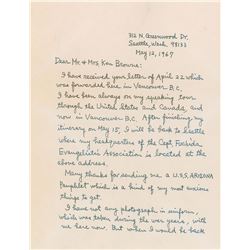 312 N. Greenwood Dr.
Seattle, Wash. 98133
May 12, 1967
Dear Mr. & Mrs. Ken Browne:
I have received your letter of April 22 which
was forwarded here in Vancouver B.C.
I have been always on my speaking tour
through the United States and Canada, and
now in Vancouver B.C. After finishing my
itinerary on May 15, I will be back to Seattle
where my headquarters of the Capt Fuchida
Evangelistic Association is located at the
above address.
Many thanks for sending me a U.S.S. ARIZONA
Pamphlet which is a kind of my most anxious
things to get.
I have not any photograph in uniform,
which was taken during the war years, with
me here now. But when I would be back